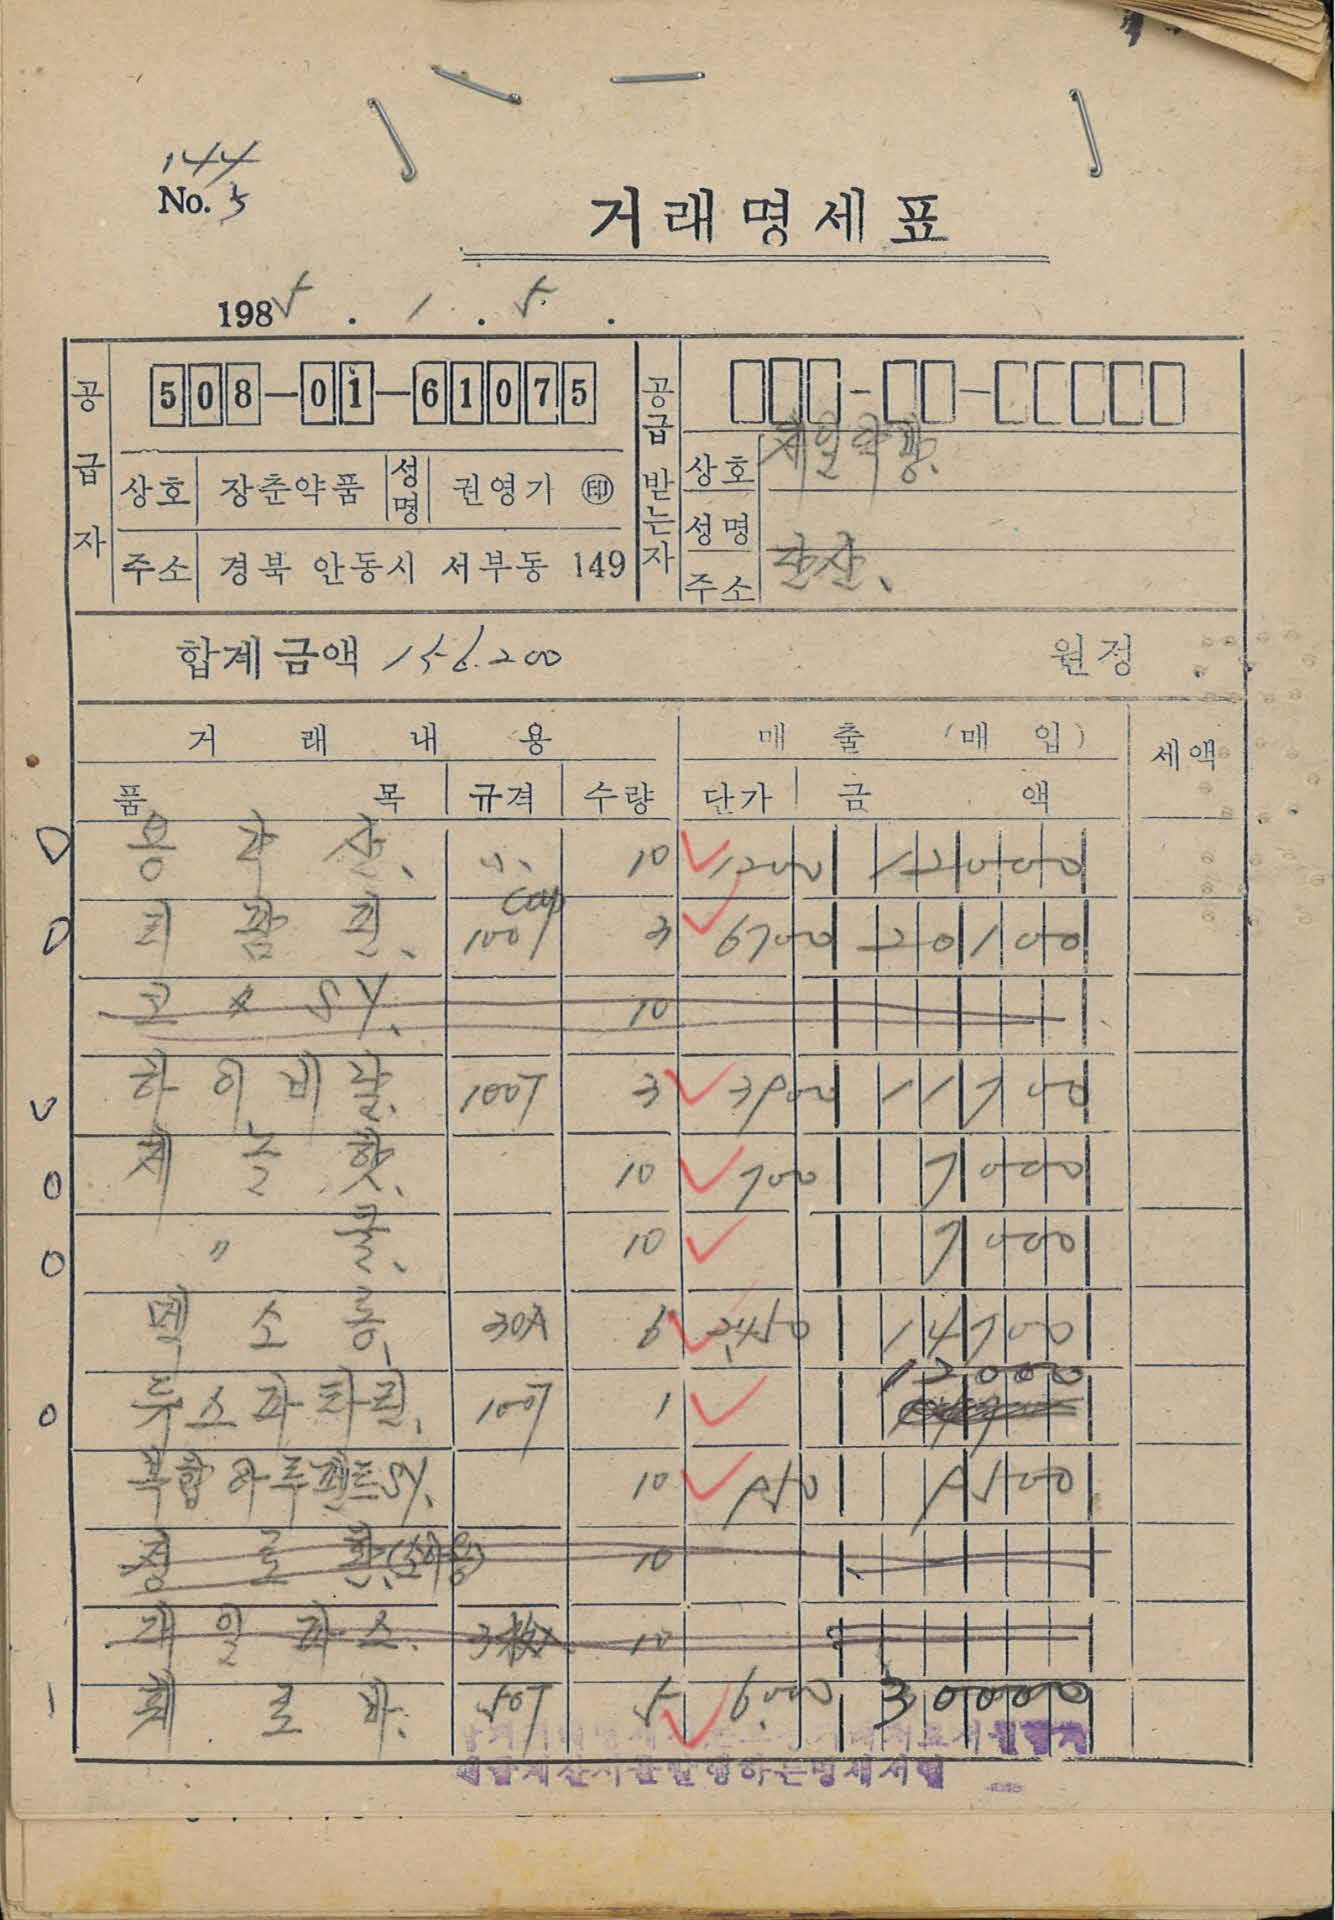 144
No. 5
거래명세표
1985 . 1 . 5 .
공급자
508-01-61075
상호 장춘약품 성명 권영가 ㊞
주소 경북 안동시 서부동 149
공급받는자
상호 제일약방.
성명
주소
합계금액 156.200 원정
거래내용 매출 (매입) 세액
품목 규격 수량 단가 금액
용각산. 小. 10 1200 12000
티팜핀. 100T cap 3 6700 20100
코 SY. 10
하이비날. 100T 3 3900 11700
제놀핫. 10 700 7000
〃 쿨. 10 7000
멕소롱. 30A 6 2,450 14700
듀스파타린. 100T 1 12000
복합하루펜트SY. 10 950 9500
정로환.(소아용) 10
제일파스. 3枚入 10
훼로바. 50T 5 6.000 30000